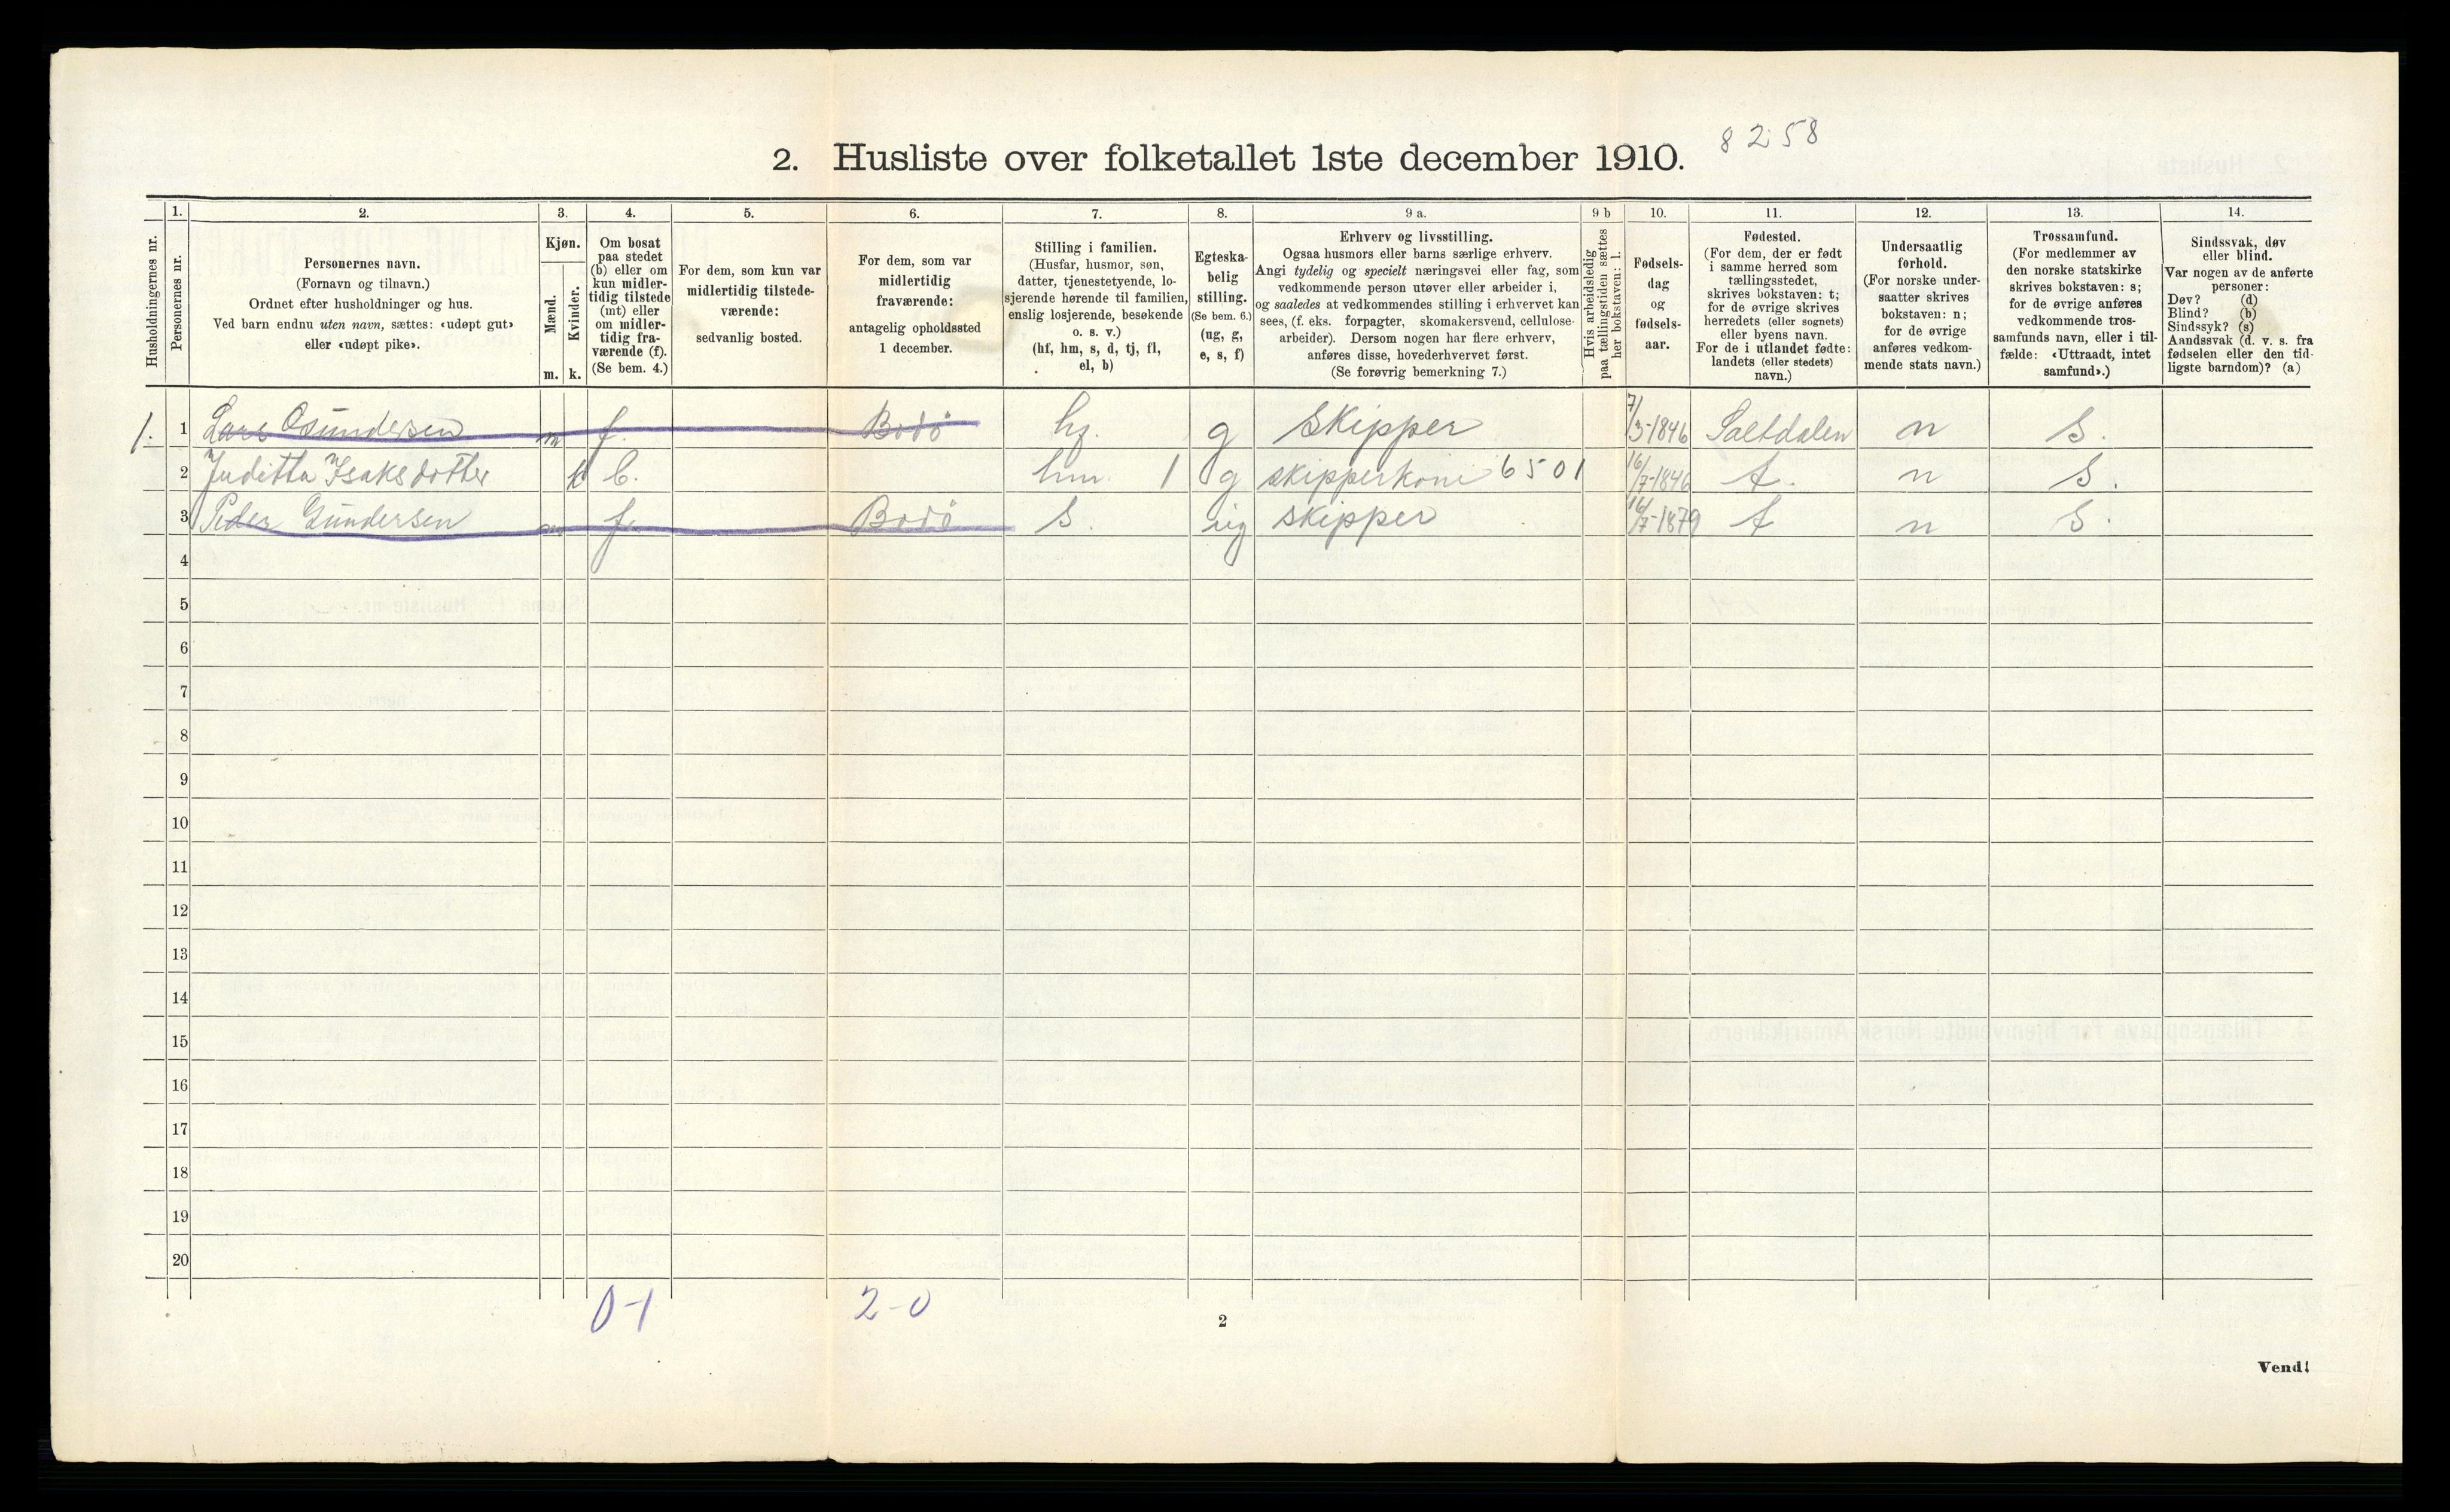 8258
2. Husliste over folketallet 1ste december 1910.
Husholdningernes nr.
1. Personernes nr.
2. Personernes navn.
(Fornavn og tilnavn.)
Ordnet efter husholdninger og hus.
Ved barn endnu uten navn, sættes: «udøpt gut»
eller «udøpt pike».
3. Kjøn.
Mænd. m.
Kvinder. k.
4. Om bosat
paa stedet
(b) eller om
kun midler-
tidig tilstede
(mt) eller
om midler-
tidig fra-
værende (f).
(Se bem. 4.)
5. For dem, som kun var
midlertidig tilstede-
værende:
sedvanlig bosted.
6. For dem, som var
midlertidig
fraværende:
antagelig opholdssted
1 december.
7. Stilling i familien.
(Husfar, husmor, søn,
datter, tjenestetyende, lo-
sjerende hørende til familien,
enslig losjerende, besøkende
o. s. v.)
(hf, hm, s, d, tj, fl,
el, b)
8. Egteska-
belig
stilling.
(Se bem. 6.)
(ug, g,
e, s, f)
9 a. Erhverv og livsstilling.
Ogsaa husmors eller barns særlige erhverv.
Angi tydelig og specielt næringsvei eller fag, som
vedkommende person utøver eller arbeider i,
og saaledes at vedkommendes stilling i erhvervet kan
sees, (f. eks. forpagter, skomakersvend, cellulose-
arbeider). Dersom nogen har flere erhverv,
anføres disse, hovederhvervet først.
(Se forøvrig bemerkning 7.)
9 b Hvis arbeidsledig
paa tællingstiden sættes
her bokstaven: l.
10. Fødsels-
dag
og
fødsels-
aar.
11. Fødested.
(For dem, der er født
i samme herred som
tællingsstedet,
skrives bokstaven: t;
for de øvrige skrives
herredets (eller sognets)
eller byens navn.
For de i utlandet fødte:
landets (eller stedets)
navn.)
12. Undersaatlig
forhold.
(For norske under-
saatter skrives
bokstaven: n;
for de øvrige
anføres vedkom-
mende stats navn.)
13. Trossamfund.
(For medlemmer av
den norske statskirke
skrives bokstaven: s;
for de øvrige anføres
vedkommende tros-
samfunds navn, eller i til-
fælde: «Uttraadt, intet
samfund».)
14. Sindssvak, døv
eller blind.
Var nogen av de anførte
personer:
Døv? (d)
Blind? (b)
Sindssyk? (s)
Aandssvak (d. v. s. fra
fødselen eller den tid-
ligste barndom)? (a)
1. 1 Lars m f. Bodö hf. g Skipper 7/3-1846 Saltdalen n S.
2 Juditta Isaksdotter k b. hm 1 g skipperkone 6501 16/7-1846 t. n S.
3 Peder Gundersen m f. Bodö S. ug skipper 16/7-1879 t n S.
4
5
6
7
8
9
10
11
12
13
14
15
16
17
18
19
20
0-1 2-0
2
Vend!